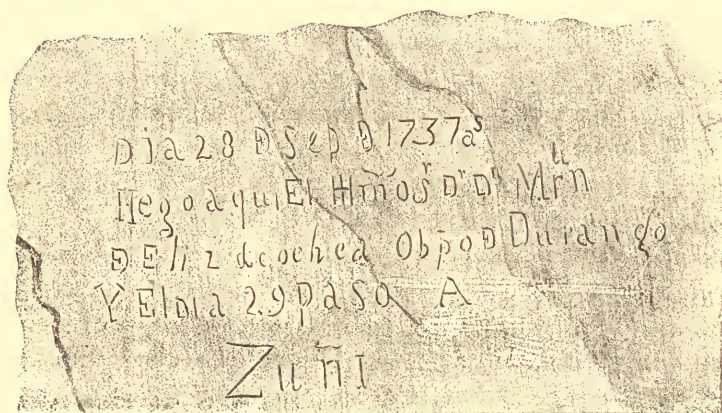 Dia 28 Đ Sep Đ 1737 aˢ
llego aqui El Yllm̃o Sʳ Dʳ Dⁿ Mrn
Đ Eliz decochea Obpo Đ Durango
Y El Dia 29 paso A
Zuñi